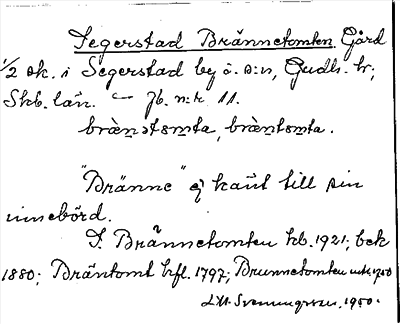 Segerstad Brännetomten. Gård
1/2 sk. i Segerstad by ö. s:n, Gudh. hr,
Skb. län. — Jb. n:r 11.
brænətsɷmta, bræntsɷmta.
"Bränne" ej känt till sin
innebörd.
T. Brännetomten kb. 1921; bek
1880; Bräntomt hfl. 1797; Brunnetomten 1750
1950.